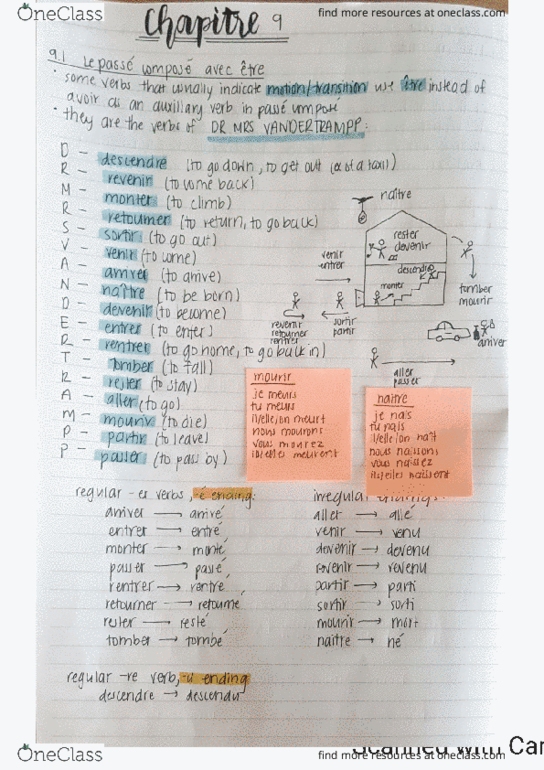 OneClass
find more resources at oneclass.com
Chapitre 9
9.1 Le passé composé avec être
· some verbs that usually indicate motion/transition use être instead of
avoir as an auxillary verb in passé composé
· they are the verbs of DR MRS VANDERTRAMPP:
D - descendre (to go down, to get out (ex of a taxi))
R - revenir (to come back)
M - monter (to climb)
R - retourner (to return, to go back)
S - sortir (to go out)
V - venir (to come)
A - arriver (to arrive)
N - naître (to be born)
D - devenir (to become)
E - entrer (to enter)
R - rentrer (to go home, to go back in)
T - tomber (to fall)
R - rester (to stay)
A - aller (to go)
M - mourir (to die)
P - partir (to leave)
P - passer (to pass by)
naître
rester
devenir
venir
entrer
descendre
monter
tomber
mourir
revenir
retourner
rentrer
sortir
partir
arriver
aller
passer
mourir
je meurs
tu meurs
il/elle/on meurt
nous mourons
vous mourez
ils/elles meurent
naitre
je nais
tu nais
il/elle/on naît
nous naissons
vous naissez
ils/elles naissent
regular -er verbs, -é ending:
arriver → arrivé
entrer → entré
monter → monté
passer → passé
rentrer → rentré
retourner → retourné
rester → resté
tomber → tombé
irregular
aller → allé
venir → venu
devenir → devenu
revenir → revenu
partir → parti
sortir → sorti
mourir → mort
naitre → né
regular -re verb, -u ending
descendre → descendu
OneClass
find more resources at oneclass.com
Scanned with Car